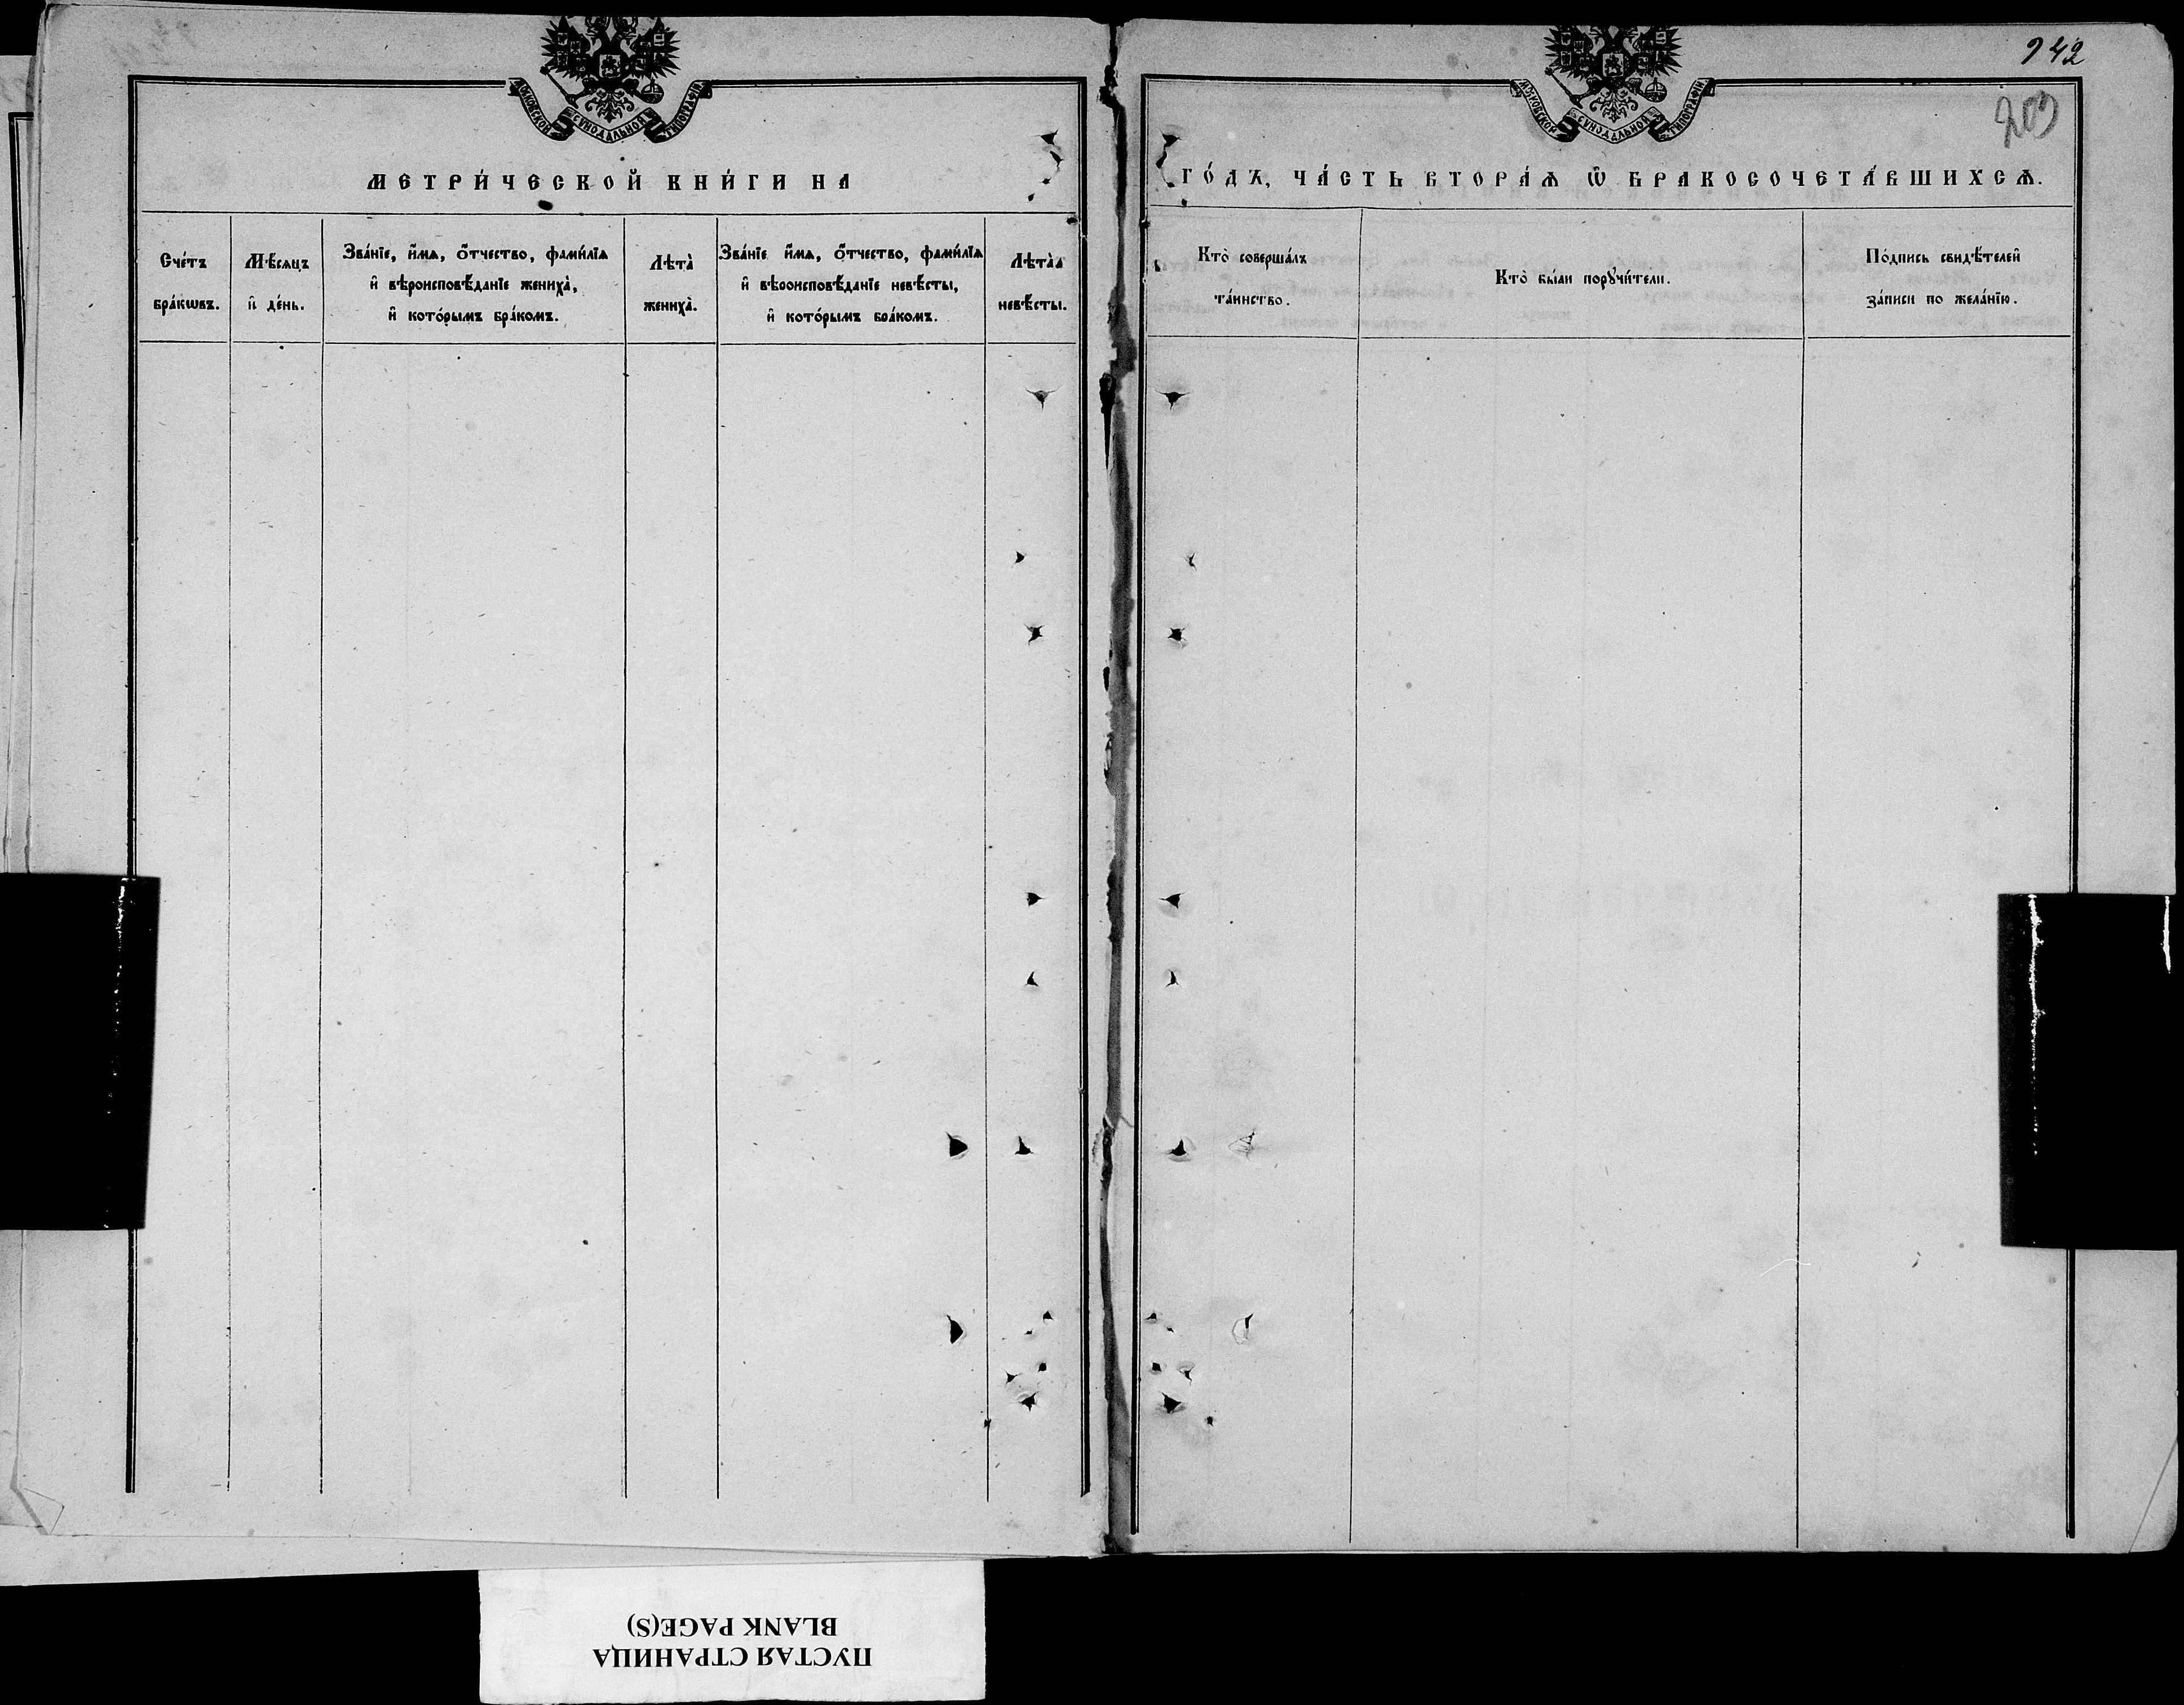 МОСКОВСКОЙ СѴНОДАЛЬНОЙ ТИПОГРАФІИ
МЕТРИ́ЧЕСКОЙ КНИ́ГИ НА
Сче́тъ
бра́кѡвъ.
Мѣ́сяцъ
и҆ де́нь.
Зва́нїе, и҆́мѧ, ѻ҆́тчество, фами́лїѧ
и҆ вѣроисповѣ́данїе жениха̀,
и҆ кото́рымъ бра́комъ.
Лѣта̀
жениха̀.
Зва́нїе и҆́мѧ, ѻ҆́тчество, фами́лїѧ
и҆ вѣроисповѣ́данїе невѣ́сты,
и҆ кото́рымъ бра́комъ.
Лѣта̀
невѣ́сты.
942
203
МОСКОВСКОЙ СѴНОДАЛЬНОЙ ТИПОГРАФІИ
ГО́ДЪ, ЧА́СТЬ ВТОРА́Ѧ Ѡ҆ БРАКОСОЧЕТА́ВШИХСѦ.
Кто̀ соверша́лъ
та́инство.
Кто̀ бы́ли порꙋчи́тели.
По́дпись свидѣ́телей
за́писи по жела́нїю.
ПУСТАЯ СТРАНИЦА
BLANK PAGE(S)